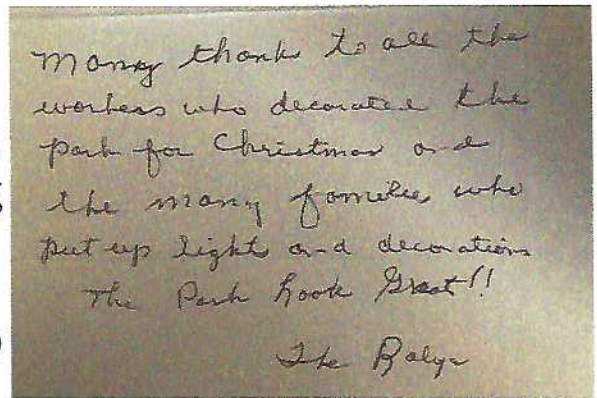 Many thank to all the
workers who decorated the
park for Christmas and
the many families who
put up light and decorations
The Park Look Great!!
The Balya